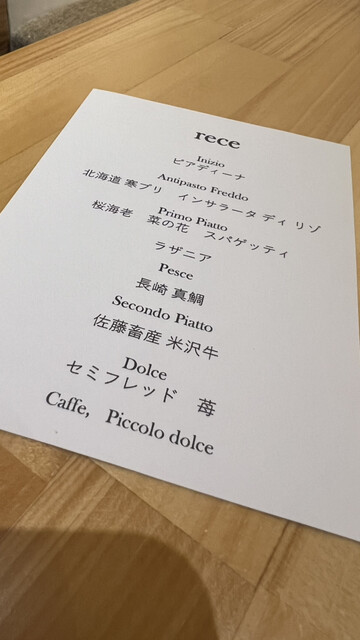 rece
Inizio
ピアディーナ
Antipasto Freddo
北海道 寒ブリ　インサラータ ディ リゾ
Primo Piatto
桜海老　菜の花　スパゲッティ
ラザニア
Pesce
長崎 真鯛
Secondo Piatto
佐藤畜産 米沢牛
Dolce
セミフレッド　苺
Caffe,　Piccolo dolce